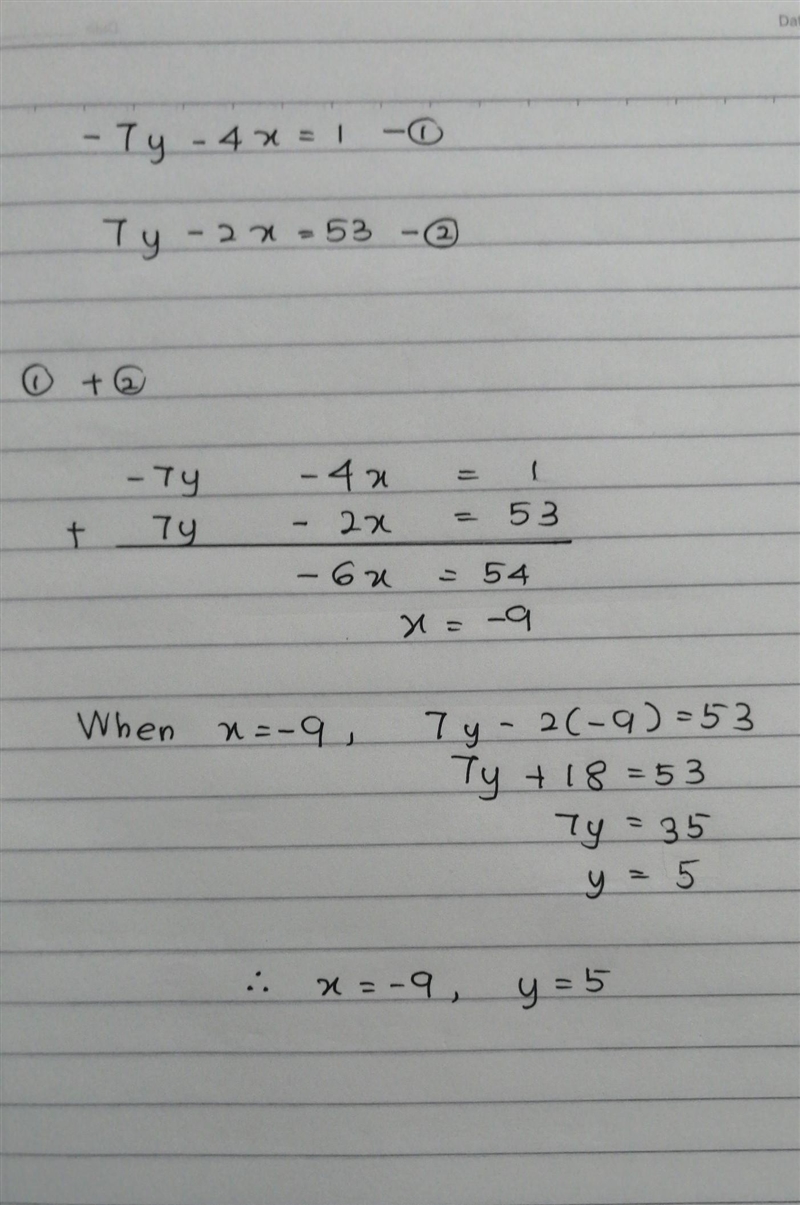 Dat
- 7y - 4x = 1 - ①
7y - 2x = 53 - ②
① + ②
-7y - 4x = 1
+ 7y - 2x = 53
- 6x = 54
x = -9
When x = -9, 7y - 2(-9) = 53
7y + 18 = 53
7y = 35
y = 5
∴ x = -9, y = 5